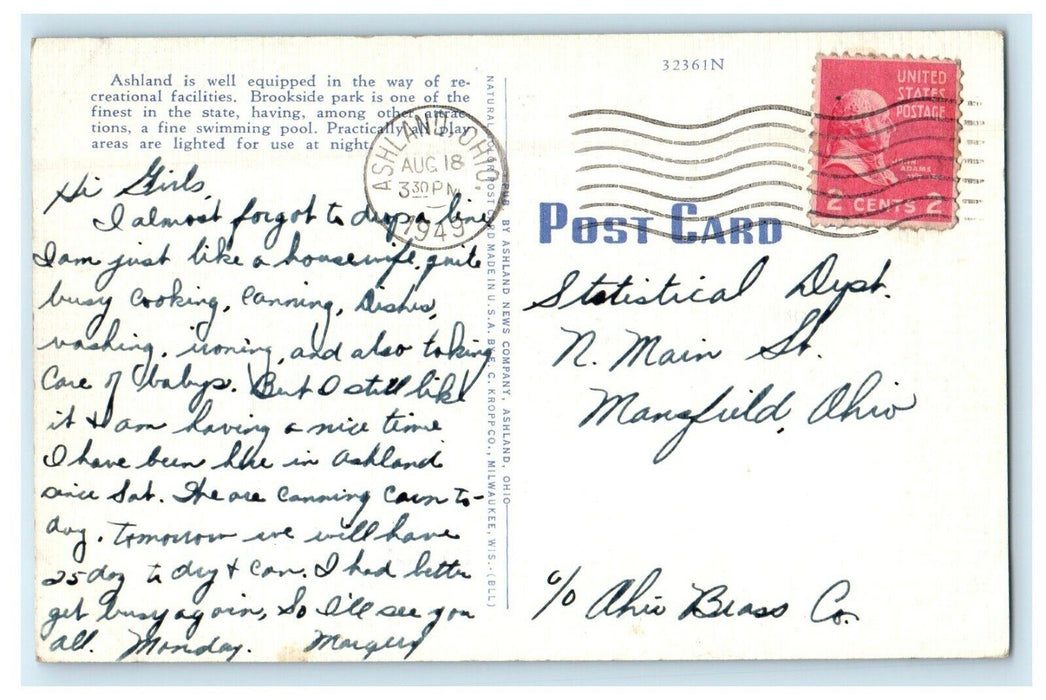 Ashland is well equipped in the way of re-
creational facilities. Brookside park is one of the
finest in the state, having, among other attrac-
tions, a fine swimming pool. Practically all play
areas are lighted for use at night.
Hi Girls,
I almost forgot to drop a line
I am just like a housewife, quite
busy cooking, canning, dishes,
washing, ironing, and also taking
care of babys. But I still like
it & am having a nice time
I have been here in Ashland
since Sat. We are canning corn to-
day. Tomorrow we will have
25 doz to dry & can. I had better
get busy again, So I'll see you
all. Monday. Margery
NATURAL COLOR POST CARD MADE IN U.S.A. BY E. C. KROPP CO., MILWAUKEE, WIS.-(BLL)
PUB. BY ASHLAND NEWS COMPANY, ASHLAND, OHIO
ASHLAND, OHIO
AUG 18
3 30 PM
1949
32361N
UNITED
STATES
POSTAGE
JOHN
ADAMS
2 CENTS 2
POST CARD
Statistical Dept.
N. Main St.
Mansfield, Ohio
c/o Ohio Brass Co.